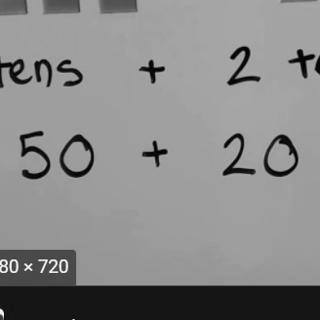 tens + 2
50 + 20
80 × 720